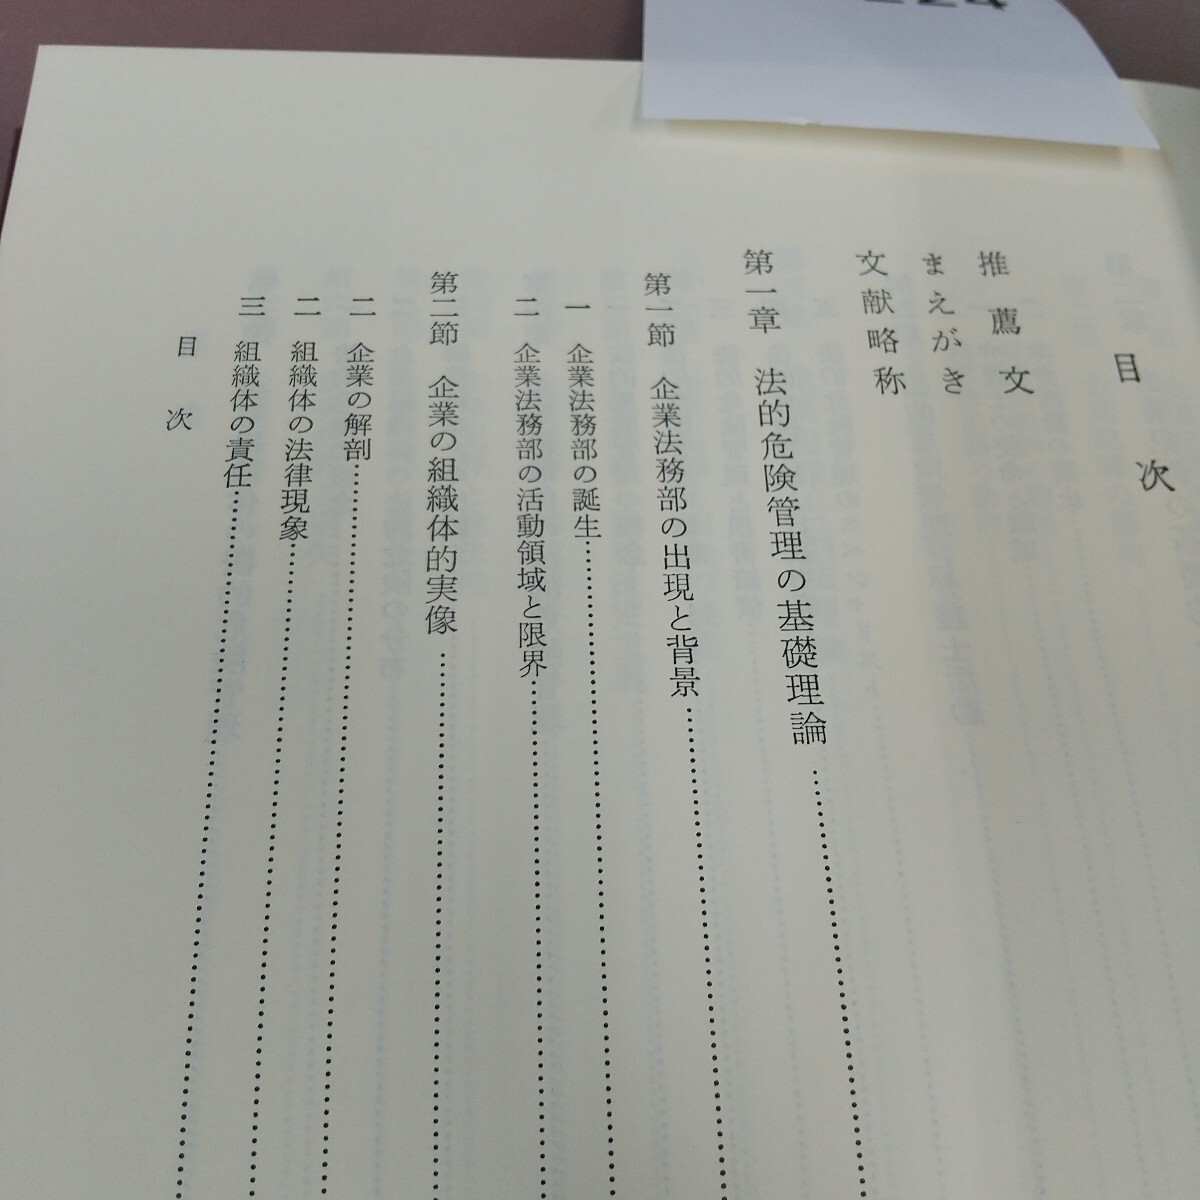 目次
推薦文
まえがき
文献略称
第一章 法的危険管理の基礎理論
第一節 企業法務部の出現と背景
一 企業法務部の誕生
二 企業法務部の活動領域と限界
第二節 企業の組織体的実像
二 企業の解剖
二 組織体の法律現象
三 組織体の責任
目次